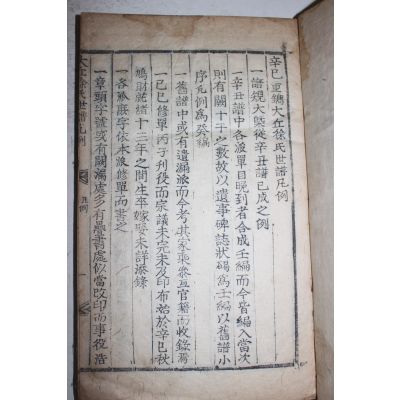 辛巳重鐫大丘徐氏世譜凡例
一譜規大槩從辛丑譜已成之例
一辛丑譜中各派單目晚到者合成壬編而今皆編入當次
則有闕十干之數故以遺事碑誌狀碣爲壬編以舊譜小
序凡例爲癸編
一舊譜中或有遺漏派而今考其家乘叅互官籍而收錄焉
一己巳修單丙子刋役而家議未完未及印布始於辛巳秋
鳩財就緖十三年之間生卒嫁娶未詳添錄
一各派嚴字依本派修單而書之
一章頭字號或有闕漏處多有疊書處似當改印而事役浩
大丘徐氏世譜凡例
凡例
一